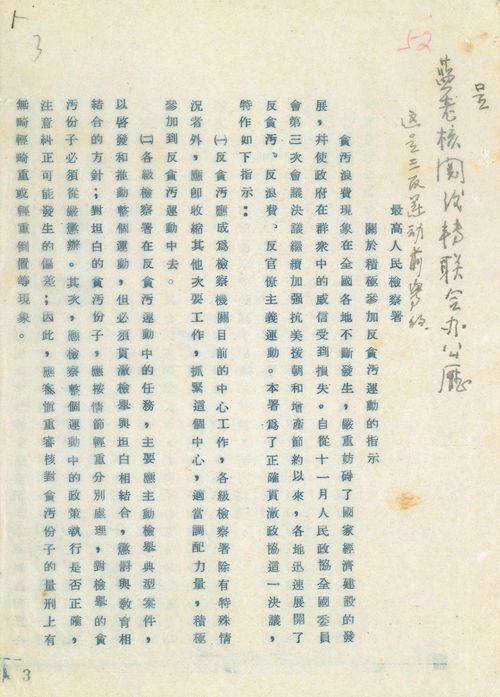 52
3
最高人民檢察署
關於積極參加反貪污運動的指示
貪污浪費現象在全國各地不斷發生，嚴重妨碍了國家經濟建設的發
展，并使政府在群衆中的威信受到損失。自從十一月人民政協全國委員
會第三次會議決議繼續加强抗美援朝和增產節約以來，各地迅速展開了
反貪污、反浪費、反官僚主義運動。本署爲了正確貫澈政協這一決議，
特作如下指示：
㈠反貪污應成爲檢察機關目前的中心工作，各級檢察署除有特殊情
況者外，應卽收縮其他次要工作，抓緊這個中心，適當調配力量，積極
參加到反貪污運動中去。
㈡各級檢察署在反貪污運動中的任務，主要應主動檢舉典型案件，
以啓發和推動整個運動，但必須貫澈檢舉與坦白相結合，懲罰與教育相
結合的方針；對坦白的貪污份子，應按情節輕重分別處理，對檢舉的貪
污份子必須從嚴懲辦。其次，應檢察整個運動中的政策執行是否正確，
注意糾正可能發生的偏差；因此，應客愼重審核對貪污份子的量刑上有
無畸輕畸重或輕重倒置等現象。
3